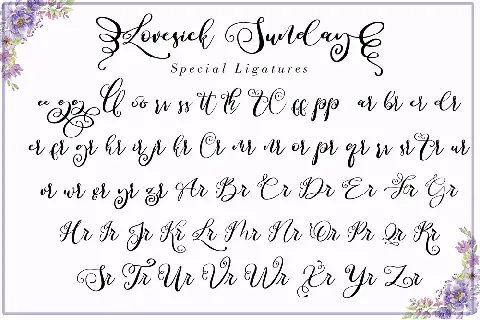 Lovesick Sunday
Special Ligatures
ee gg ll oo rr ss tt th TC ff pp ar br cr dr
er fr gr hr ir jr kr lr mr nr or pr qr rr sr tr ur
vr wr xr yr zr Ar Br Cr Dr Er Fr Gr
Hr Ir Jr Kr Lr Mr Nr Or Pr Qr Rr
Sr Tr Ur Vr Wr Xr Yr Zr